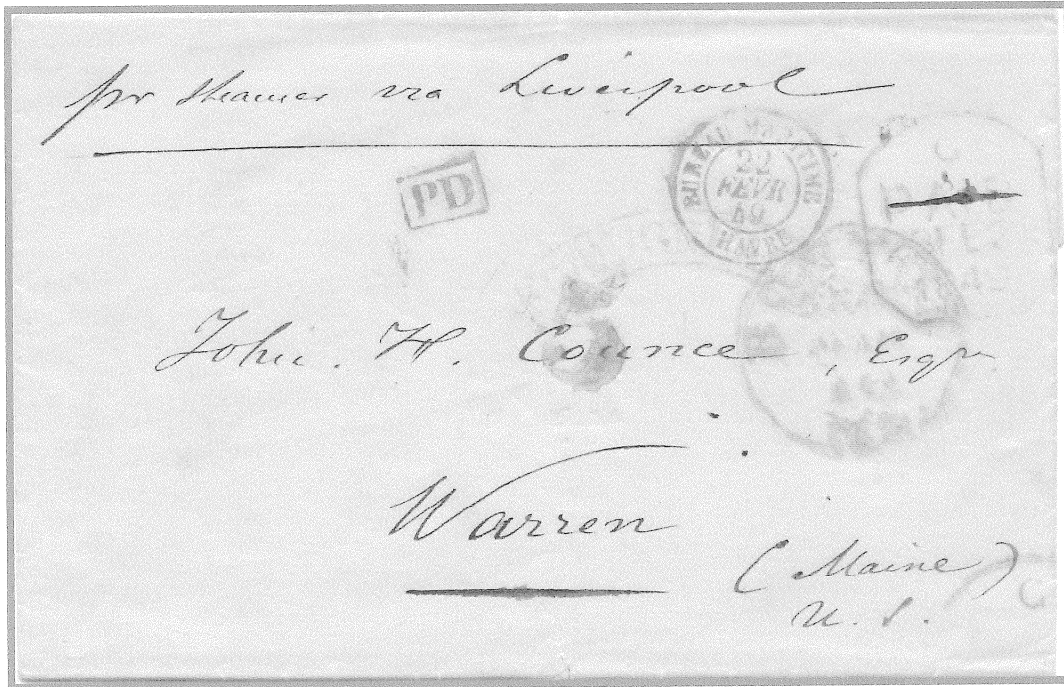 pr steamer via Liverpool
PD
BUREAU MARITIME
22
FEVR
69
HAVRE
John. H. Counce, Esqr
Warren
(Maine)
U. S.